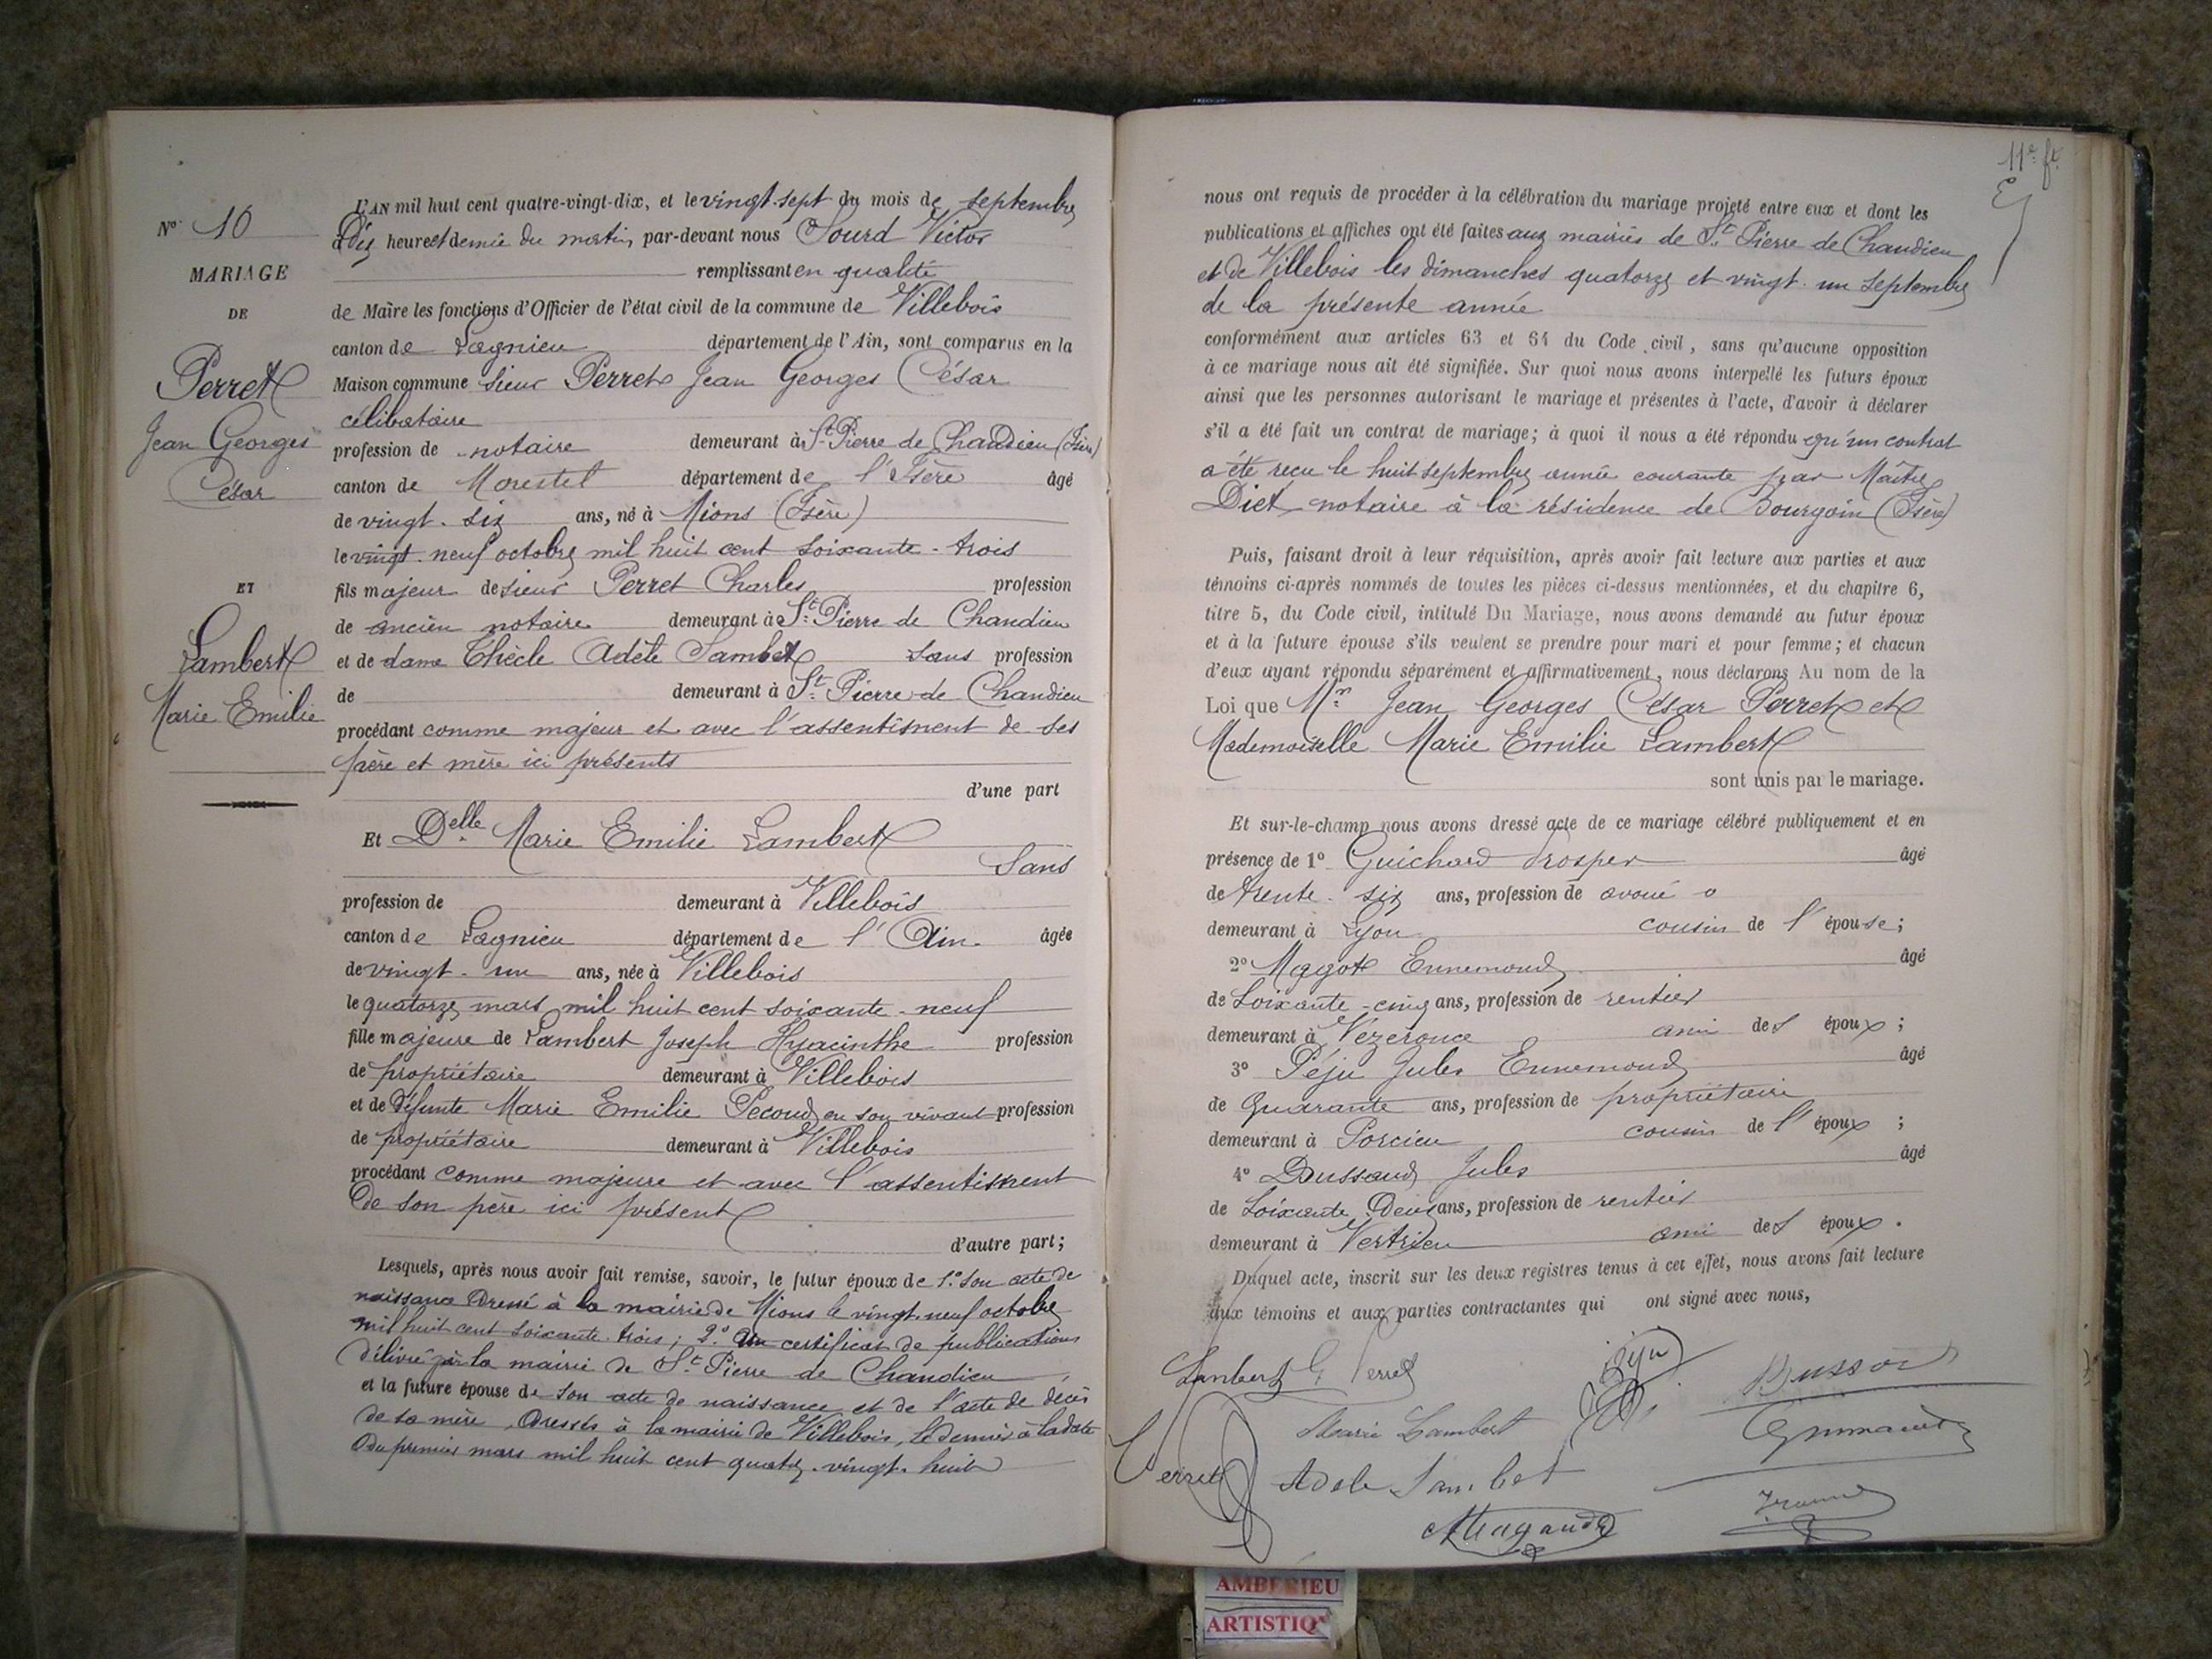 N° 10
MARIAGE
DE
Perret
Jean Georges
César
ET
Lambert
Marie Emilie
L'AN mil huit cent quatre-vingt-dix, et le vingt-sept du mois de septembre
à Dix heures et demie du matin, par-devant nous Sourd Victor
remplissant en qualité
de Maire les fonctions d'Officier de l'état civil de la commune de Villebois
canton de Lagnieu département de l'Ain, sont comparus en la
Maison commune sieur Perret Jean Georges César
célibataire
profession de notaire demeurant à St Pierre de Chandieu (Isère)
canton de Morestel département de l'Isère âgé
de vingt-six ans, né à Mions (Isère)
le vingt-neuf octobre mil huit cent soixante-trois
fils majeur de sieur Perret Charles profession
de ancien notaire demeurant à St Pierre de Chandieu
et de dame Thècle Adèle Sambet sans profession
de demeurant à St Pierre de Chandieu
procédant comme majeur et avec l'assentiment de ses
père et mère ici présents
d'une part
Et Delle Marie Emilie Lambert
Sans
profession de demeurant à Villebois
canton de Lagnieu département de l'Ain âgée
de vingt-un ans, née à Villebois
le quatorze mars mil huit cent soixante-neuf
fille majeure de Lambert Joseph Hyacinthe profession
de propriétaire demeurant à Villebois
et de Défunte Marie Emilie Pecoud en son vivant profession
de propriétaire demeurant à Villebois
procédant comme majeure et avec l'assentiment
de son père ici présent
d'autre part;
Lesquels, après nous avoir fait remise, savoir, le futur époux de 1° son acte de
naissance dressé à la mairie de Mions le vingt-neuf octobre
mil huit cent soixante-trois; 2° un certificat de publications
délivré par la mairie de St Pierre de Chandieu
et la future épouse de son acte de naissance et de l'acte de décès
de sa mère, dressés à la mairie de Villebois, le dernier à la date
du premier mars mil huit cent quatre-vingt-huit
11e ft.
nous ont requis de procéder à la célébration du mariage projeté entre eux et dont les
publications et affiches ont été faites aux mairies de St Pierre de Chandieu
et de Villebois les dimanches quatorze et vingt-un septembre
de la présente année
conformément aux articles 63 et 64 du Code civil, sans qu'aucune opposition
à ce mariage nous ait été signifiée. Sur quoi nous avons interpellé les futurs époux
ainsi que les personnes autorisant le mariage et présentes à l'acte, d'avoir à déclarer
s'il a été fait un contrat de mariage; à quoi il nous a été répondu qu'un contrat
a été reçu le huit septembre année courante par Maître
Diet notaire à la résidence de Bourgoin (Isère)
Puis, faisant droit à leur réquisition, après avoir fait lecture aux parties et aux
témoins ci-après nommés de toutes les pièces ci-dessus mentionnées, et du chapitre 6,
titre 5, du Code civil, intitulé Du Mariage, nous avons demandé au futur époux
et à la future épouse s'ils veulent se prendre pour mari et pour femme; et chacun
d'eux ayant répondu séparément et affirmativement, nous déclarons Au nom de la
Loi que Mr Jean Georges César Perret et
Mademoiselle Marie Emilie Lambert
sont unis par le mariage.
Et sur-le-champ nous avons dressé acte de ce mariage célébré publiquement et en
présence de 1° Guichard Prosper âgé
de trente-six ans, profession de avoué
demeurant à Lyon cousin de l'épouse;
2° Magot Ennemond âgé
de soixante-cinq ans, profession de rentier
demeurant à Vézeronce ami des époux;
3° Péju Jules Ennemond âgé
de quarante ans, profession de propriétaire
demeurant à Porcieu cousin de l'époux;
4° Dussaud Jules âgé
de soixante-deux ans, profession de rentier
demeurant à Vertrieu ami des époux.
Duquel acte, inscrit sur les deux registres tenus à cet effet, nous avons fait lecture
aux témoins et aux parties contractantes qui ont signé avec nous,
Lambert G Perret
Marie Lambert
Perret
Adèle Sambet
AMBERIEU
ARTISTIQ